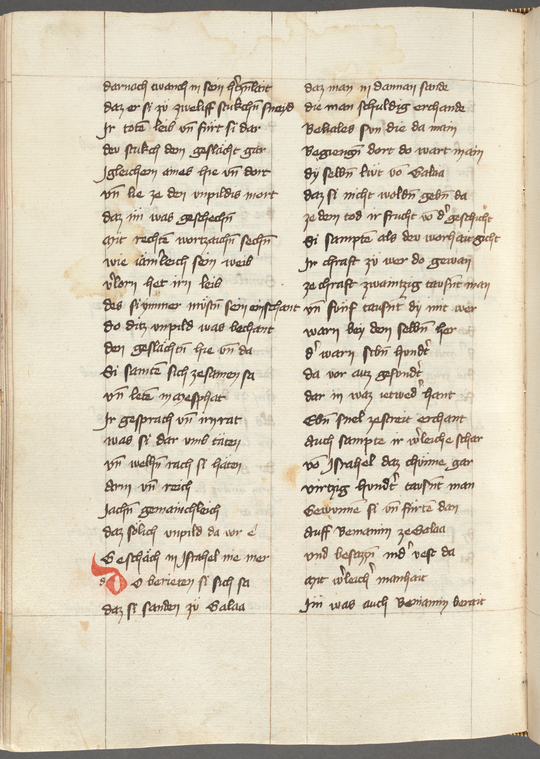 darnach twanch in sein h'czenlait
daz er si zu zwelff stukchn sneid
Ir toten leib vn furt si dar
dew stukch den geslächt gar
Igleichem ains hie vn dort
vn lie ze den vnpildis mort
daz im was geschechn
mit rechtn wortzaichn sechn
wie iamleich sein weib
v'lorn het irn leib
des si ymmer müstn sein enschant
do ditz vnpild was bechant
den geslächtn hie vn da
Si samtn sich zesamen sa
vn letn in Masphat
Ir gesprach vn irn rat
was si dar vmb tätn
vn welhn rach si hätn
arm vn reich
Iachn gemainchleich
daz solich vnpild da vor e
Geschäch in Israhel nie mer
Do berietn si sich sa
daz si sandn zu Galaa
daz man in dannan sande
die man schuldig erchande
Beliales sun die da main
Begiengn dort do wart main
dy selbn lüt vo Galaa
daz si nicht woldn gebn da
ze dem tod ir frucht vo d' geschicht
Si samptn als dew worhait gicht
Ir chraft zu wer do gewan
ze chraft zwaintzig tausnt man
vn funf tausnt dy mit wer
warn bey dem selbn her
d' warn sibn hundt
da vor auz gesundt
dar in waz ietwed' hant
Ebn snel ze streit erchant
Auch sampte ir w'leiche schar
vo Israhel daz chunne gar
virtzig hundt tausnt man
Gewunne si vn furte dan
Auff Beniamin ze Galaa
vnd besazzn ind' vest da
mit w'leich' manhait
Im was auch Beniamin berait